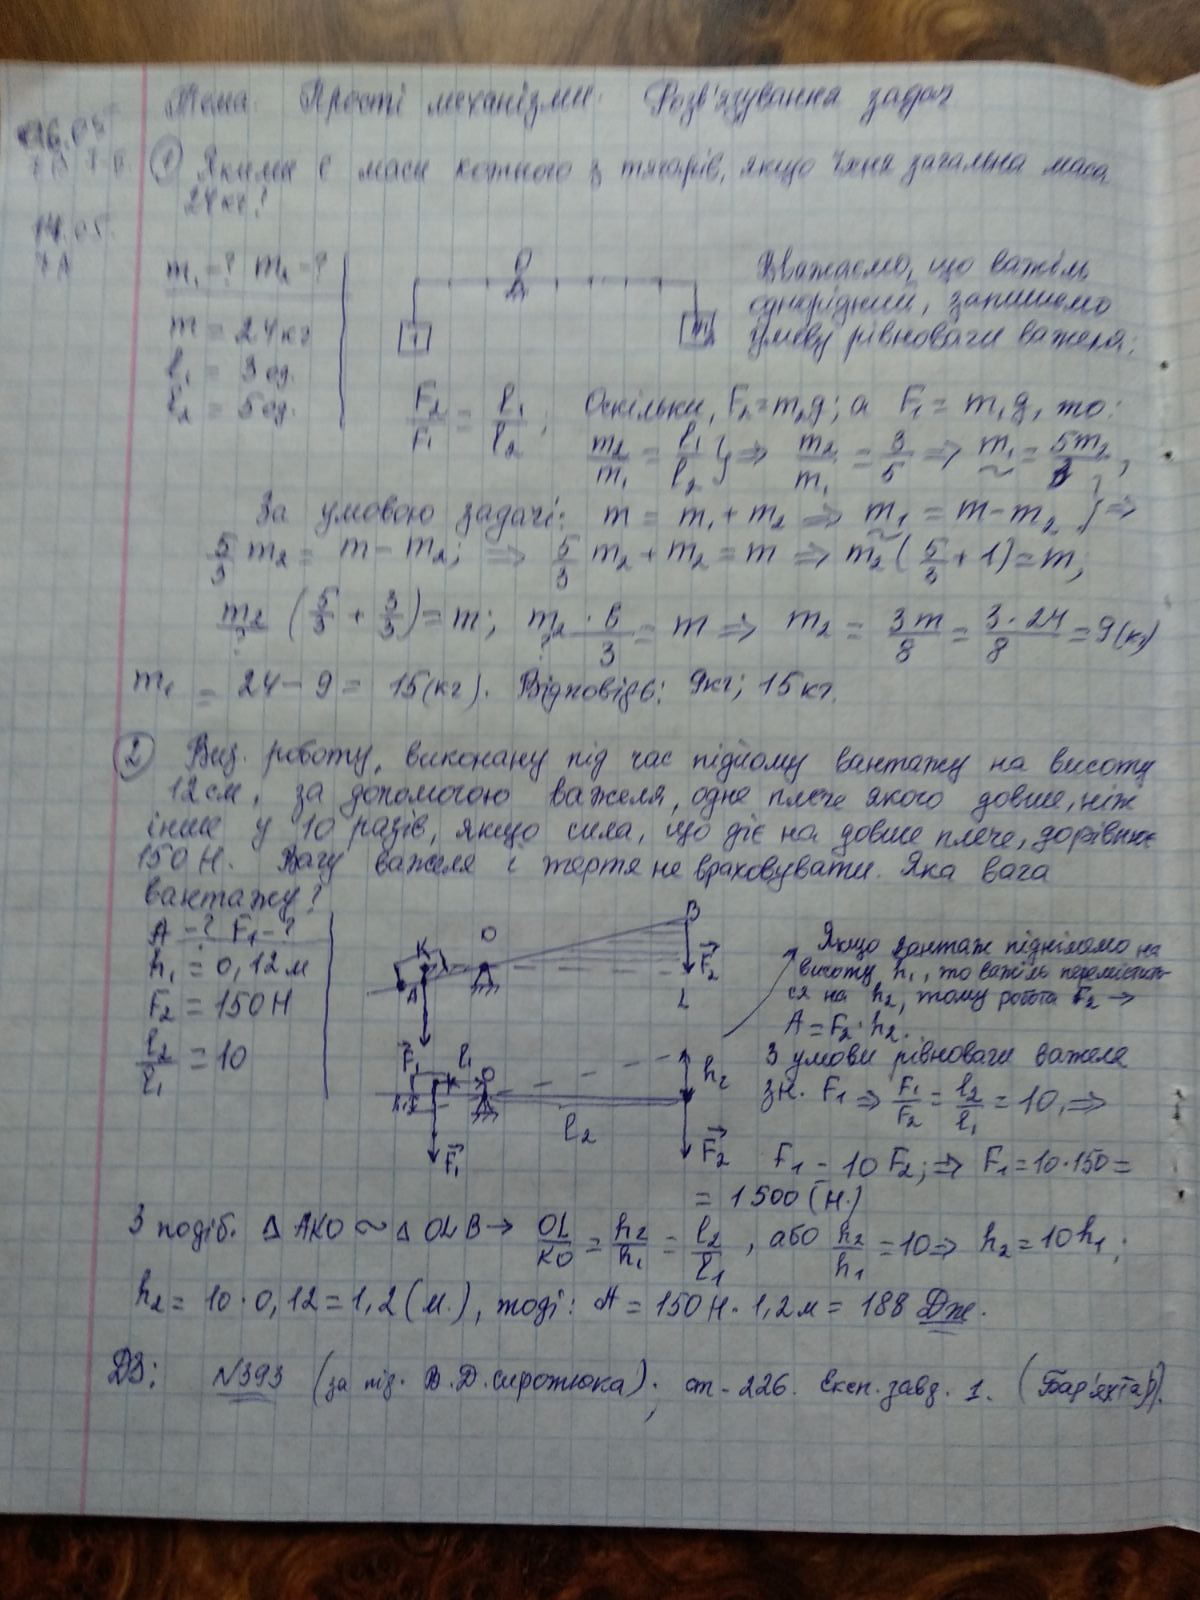 Тема: Прості механізми. Розв'язування задач
14.05.
7А
① Якими є маси кожного з тягарів, якщо їхня загальна маса
24кг?
m₁ - ? m₂ - ?
m = 24кг
l₁ = 3 од.
l₂ = 5 од.
O
1
m₂
Вважаємо, що важіль
однорідний, запишемо
умову рівноваги важеля:
F₂/F₁ = l₁/l₂; Оскільки, F₂ = m₂g; а F₁ = m₁g, то:
m₂/m₁ = l₁/l₂} ⇒ m₂/m₁ = 3/5 ⇒ m₁ = 5m₂/3;
За умовою задачі: m = m₁ + m₂ ⇒ m₁ = m - m₂} ⇒
5/3 m₂ = m - m₂; ⇒ 5/3 m₂ + m₂ = m ⇒ m₂(5/3 + 1) = m;
m₂/? (5/3 + 3/3) = m; m₂ · 8/3 = m ⇒ m₂ = 3m/8 = 3·24/8 = 9(кг)
m₁ = 24 - 9 = 15(кг). Відповідь: 9кг; 15кг.
② Виз. роботу, виконану під час підйому вантажу на висоту
12см, за допомогою важеля, одне плече якого довше, ніж
інше у 10 разів, якщо сила, що діє на довше плече, дорівнює
150Н. Вагу важеля і тертя не враховувати. Яка вага
вантажу?
A - ? F₁ - ?
h₁ = 0,12м
F₂ = 150Н
l₂/l₁ = 10
K O B
A F₂
L
F₁ l₁ O h₂
l₂
F₁ F₂
Якщо вантаж піднімаємо на
висоту h₁, то важіль перемістить-
ся на h₂, тому робота F₂ →
A = F₂·h₂.
З умови рівноваги важеля
зн. F₁ ⇒ F₁/F₂ = l₂/l₁ = 10, ⇒
F₁ = 10F₂; ⇒ F₁ = 10·150 =
= 1500(Н.)
З подіб. Δ AKO ~ Δ OLB → OL/KO = h₂/h₁ = l₂/l₁, або h₂/h₁ = 10 ⇒ h₂ = 10h₁;
h₂ = 10·0,12 = 1,2(м.), тоді: A = 150Н·1,2м = 188 Дж.
ДЗ: №393 (за під. В.Д.Сиротюка); ст-226. Експ. завд. 1. (Бар'яхтар).